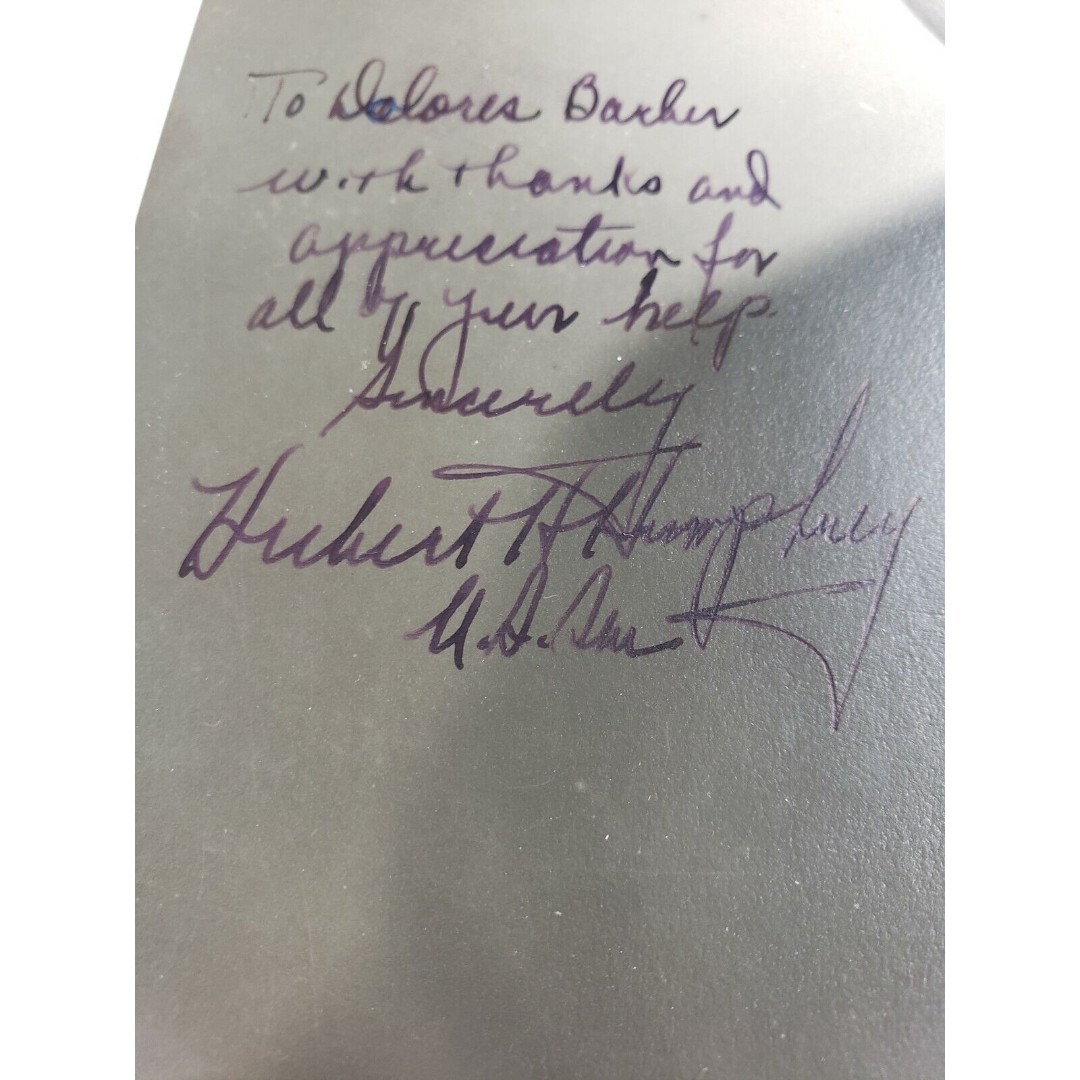 To Dolores Barber
with thanks and
appreciation for
all of your help.
Sincerely
Hubert H Humphrey
U.S. Sen